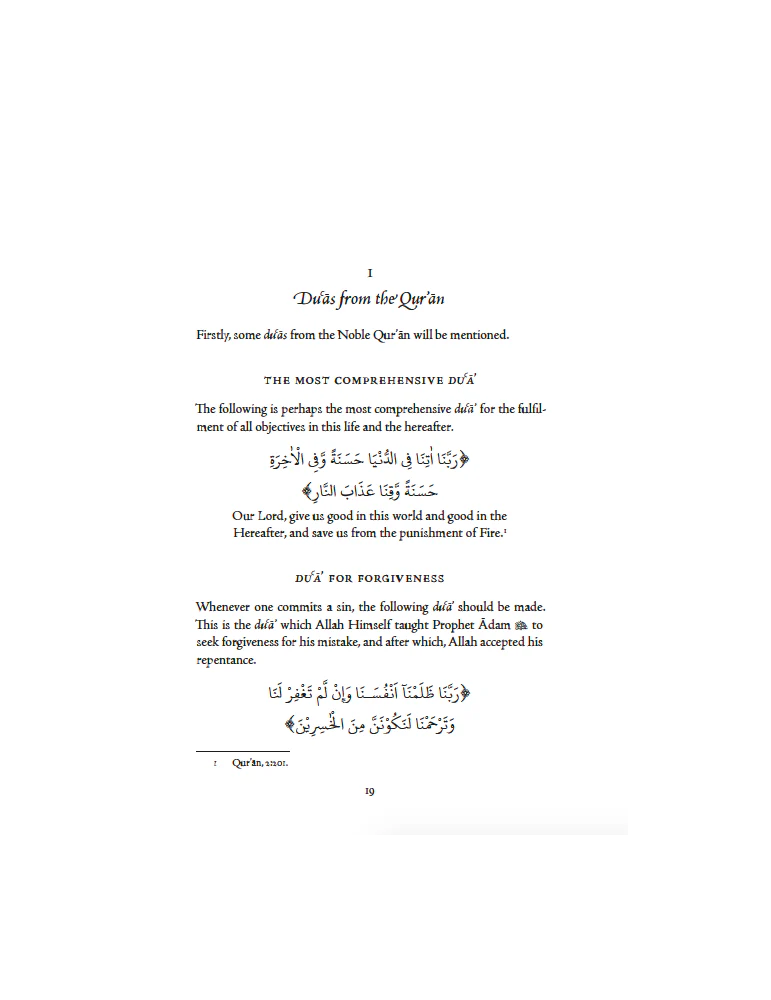 I
Duʿās from the Qurʾān
Firstly, some duʿās from the Noble Qurʾān will be mentioned.
THE MOST COMPREHENSIVE DUʿĀʾ
The following is perhaps the most comprehensive duʿāʾ for the fulfil-
ment of all objectives in this life and the hereafter.
﴿رَبَّنَا اٰتِنَا فِي الدُّنْيَا حَسَنَةً وَّفِي الْاٰخِرَةِ
حَسَنَةً وَّقِنَا عَذَابَ النَّارِ﴾
Our Lord, give us good in this world and good in the
Hereafter, and save us from the punishment of Fire.¹
DUʿĀʾ FOR FORGIVENESS
Whenever one commits a sin, the following duʿāʾ should be made.
This is the duʿāʾ which Allah Himself taught Prophet Ādam to
seek forgiveness for his mistake, and after which, Allah accepted his
repentance.
﴿رَبَّنَا ظَلَمْنَآ اَنْفُسَـنَا وَاِنْ لَّمْ تَغْفِرْ لَنَا
وَتَرْحَمْنَا لَنَكُوْنَنَّ مِنَ الْخٰسِرِيْنَ﴾
1 Qurʾān, 2:201.
19